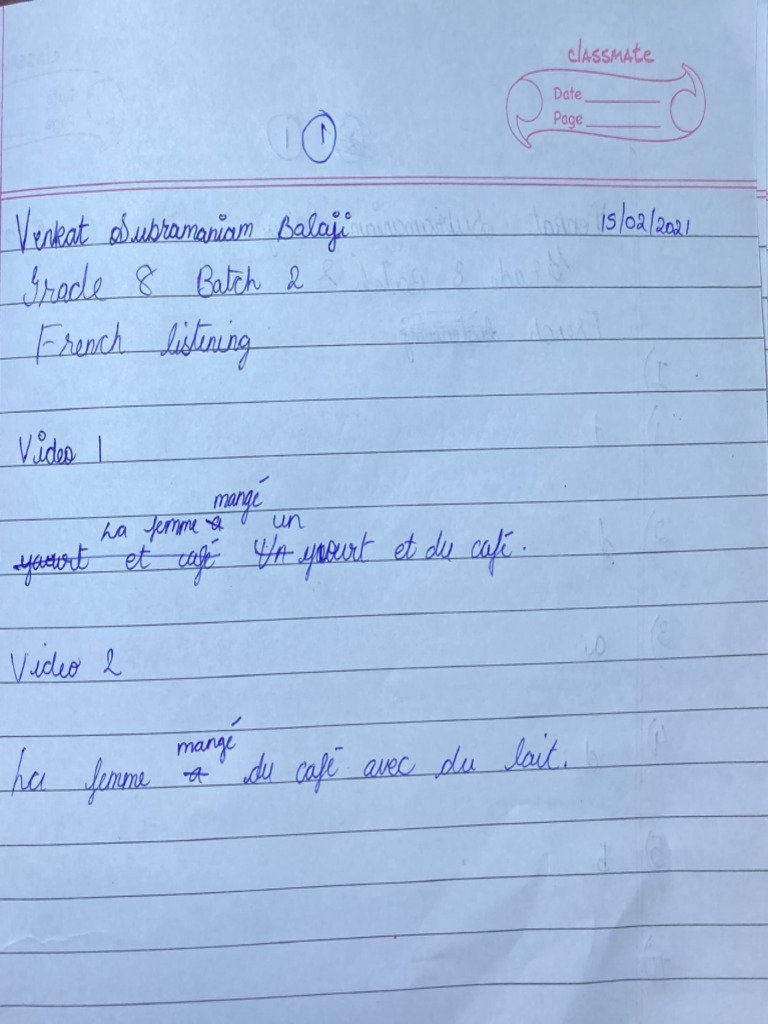 classmate
Date
Page
1
Venkat Subramaniam Balaji 15/02/2021
Grade 8 Batch 2
French listining
Video 1
mangé
La femme a un
yaourt et café yaourt et du café.
Video 2
mangé
La femme a du café avec du lait.